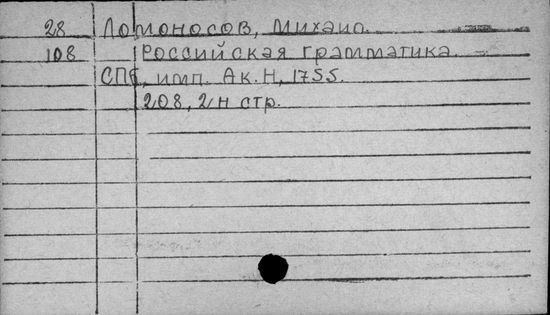 28 Ломоносов, Михаил.
108 Российская грамматика.
СПб, имп. Ак. Н, 1755.
208, 2/н стр.